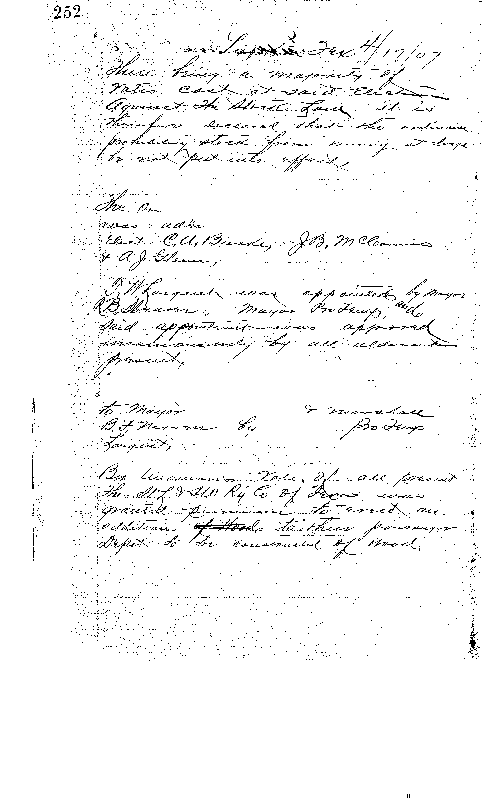 252
Tex 4/17/07
There being a majority of
votes cast at said Election
Against the Stock Law it is
therefore ordered that the ordinance
prohibiting stock from runing at large
be not put into effect,
The
was
Elect C.A. J.B. McComis
& A.J.
was appointed by Mayor
B. Mayor Protemp, and
said appointment was approved
unanimously by all aldermen
present,
to Mayor & marshall
B.F. by Protemp
By Unanimus Vote of all present
the St L & S.W. Ry Co of Texas was
granted permission to erect an
addition of Hood to their passenger
Depot to be constructed of Wood.